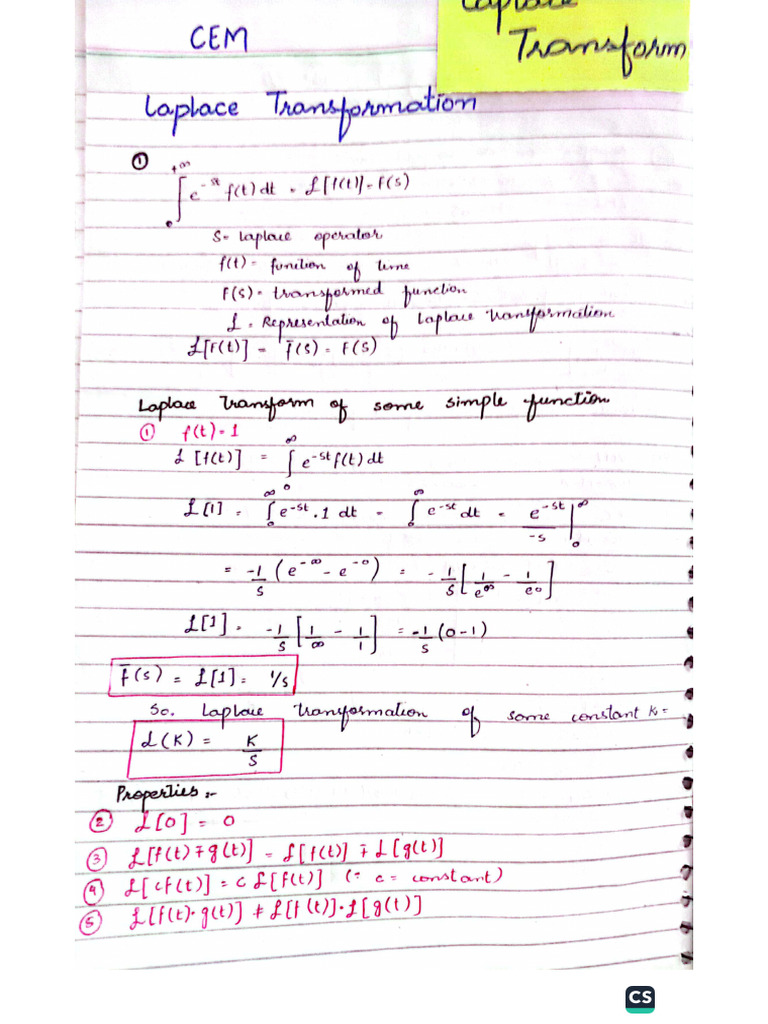 CEM
Laplace
Transform
Laplace Transformation
①
∫₀^{+∞} e^{-st} f(t) dt = ℒ[f(t)] = F(s)
S = laplace operator
f(t) = function of time
F(s) = transformed function
ℒ = Representation of Laplace transformation
ℒ[F(t)] = f̄(s) = F(s)
Laplace transform of some simple function
① f(t) = 1
ℒ[f(t)] = ∫₀^∞ e^{-st} f(t) dt
ℒ[1] = ∫₀^∞ e^{-st} . 1 dt = ∫₀^∞ e^{-st} dt = e^{-st}/-s |₀^∞
= -1/s (e^{-∞} - e^{-0}) = -1/s [1/e^∞ - 1/e^0]
ℒ[1] = -1/s [1/∞ - 1/1] = -1/s (0-1)
F̄(s) = ℒ[1] = 1/s
So. Laplace transformation of some constant K =
ℒ(K) = K/S
Properties :-
② ℒ[0] = 0
③ ℒ[f(t) ∓ g(t)] = ℒ[f(t)] ∓ ℒ[g(t)]
④ ℒ[cf(t)] = c ℒ[f(t)] (= c = constant)
⑤ ℒ[f(t)·g(t)] ≠ ℒ[f(t)]·ℒ[g(t)]
CS